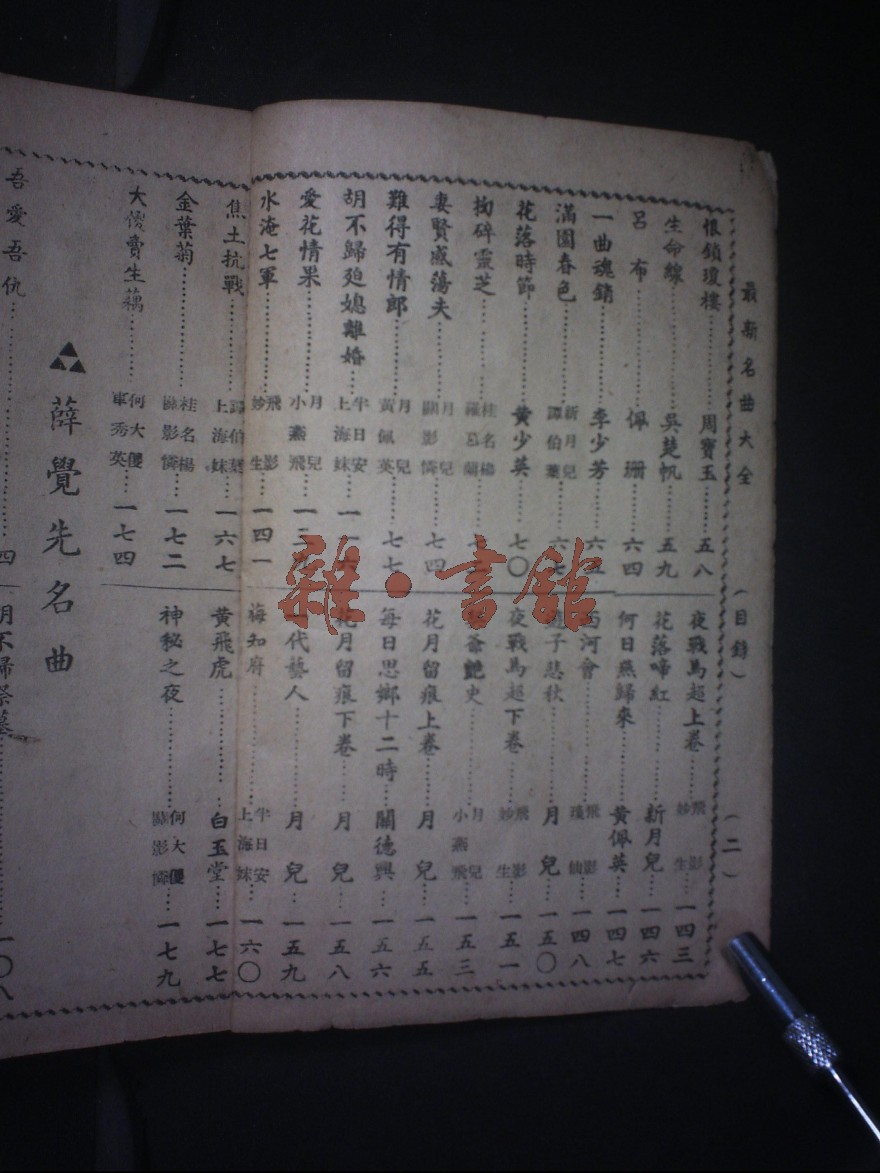 最新名曲大全 (目錄) (二)
恨鎖瓊樓……周寶玉……五八
生命線……吳楚帆……五九
呂布……佩珊……六四
一曲魂銷……李少芳……六
滿園春色……新月兒 譚伯葉……六
花落時節……黃少英……七〇
拗碎靈芝……桂名楊 羅慕蘭……七
妻賢感蕩夫……月兒 關影憐……七四
難得有情郎……月兒 黃佩英……七七
胡不歸廹媳離婚……半日安 上海妹……一一
愛花情果……月兒 小燕飛……一二九
水淹七軍……飛影 妙生……一四一
焦土抗戰……譚伯葉 上海妹……一六七
金葉菊……桂名楊 關影憐……一七二
大傻賣生藕……何大傻 車秀英……一七四
夜戰馬超上卷……飛影 妙生……一四三
花落啼紅……新月兒……一四六
何日燕歸來……黃佩英……一四七
河會……飛影 瓊仙……一四八
子悲秋……月兒……一五〇
夜戰馬超下卷……飛影 妙生……一五一
爺艷史……月兒 小燕飛……一五三
花月留痕上卷……月兒……一五五
每日思鄉十二時……關德興……一五六
花月留痕下卷……月兒……一五八
一代藝人……月兒……一五九
梅知府……半日安 上海妹……一六〇
黃飛虎……白玉堂……一七七
神秘之夜……何大傻 關影憐……一七九
薛覺先名曲
吾愛吾仇……四
胡不歸祭墓……一〇八
雜·書館